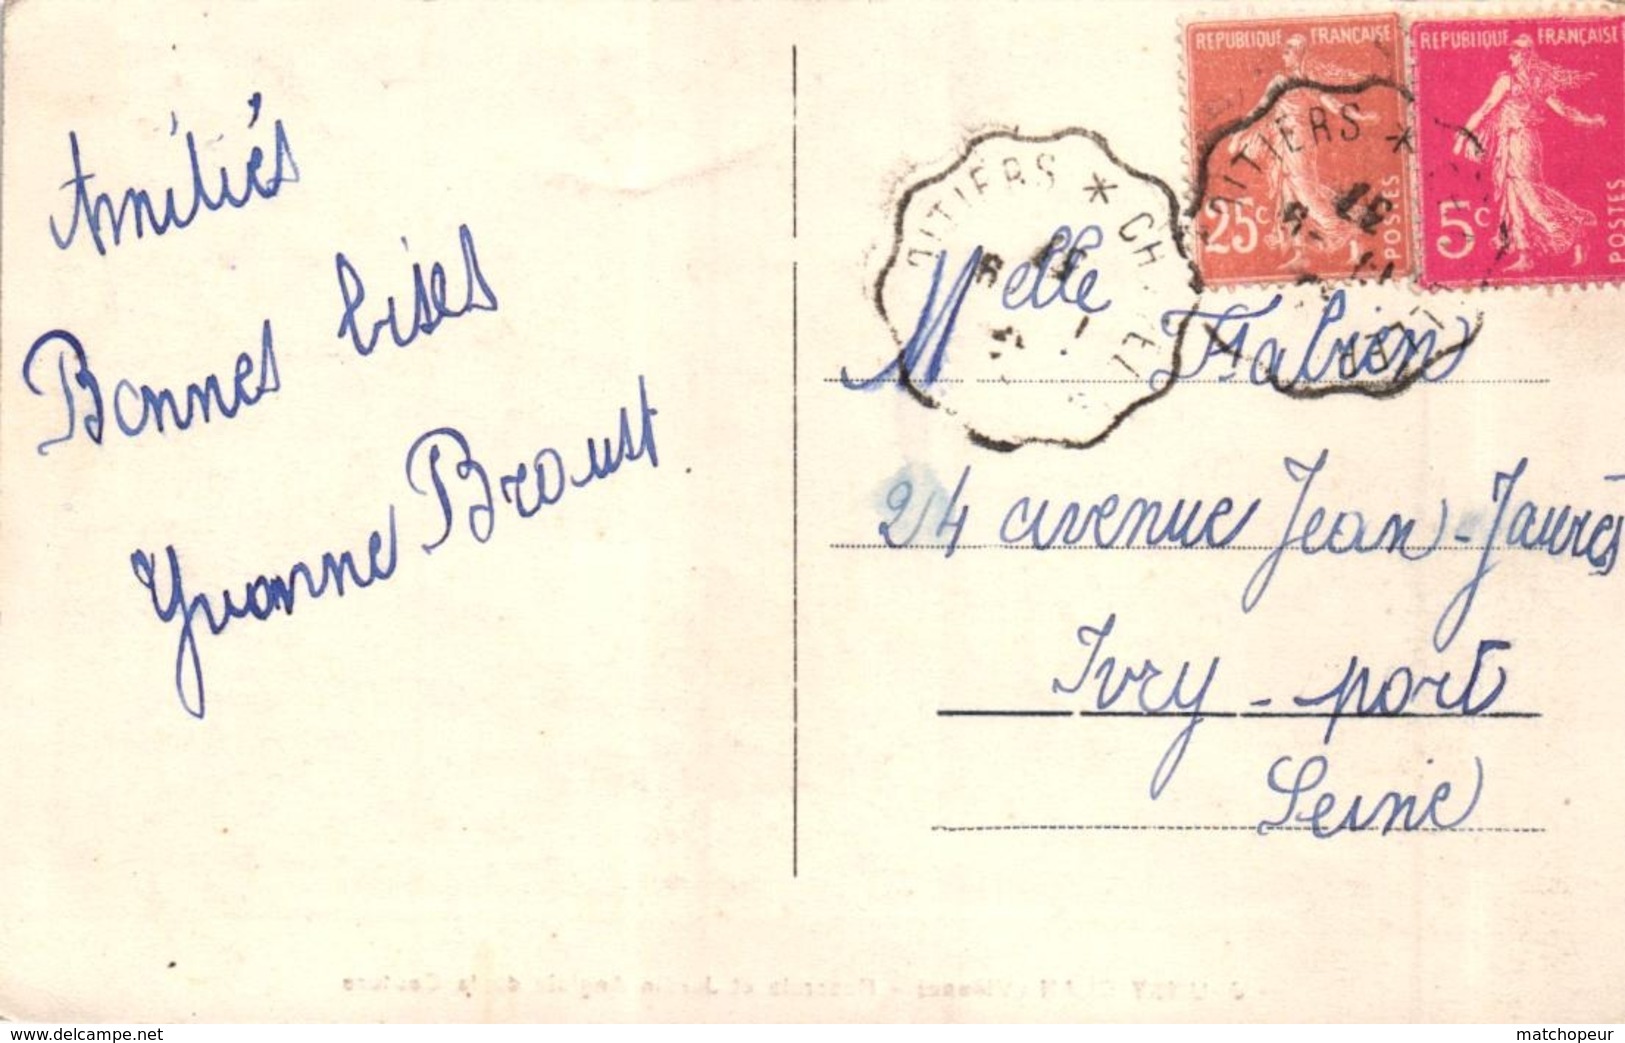 Amitiés
Bonnes bises
Yvonne Broust
REPUBLIQUE FRANÇAISE
25c
POSTES
REPUBLIQUE FRANÇAISE
5c
POSTES
OITIERS * CH
OITIERS *
37
Melle Fabien
24 avenue Jean-Jaurès
Ivry-port
Seine
www.delcampe.net
matchopeur